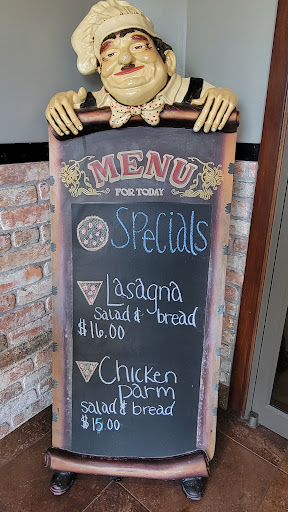 MENU
FOR TODAY
Specials
Lasagna
salad & bread
$16.00
Chicken
parm
salad & bread
$15.00